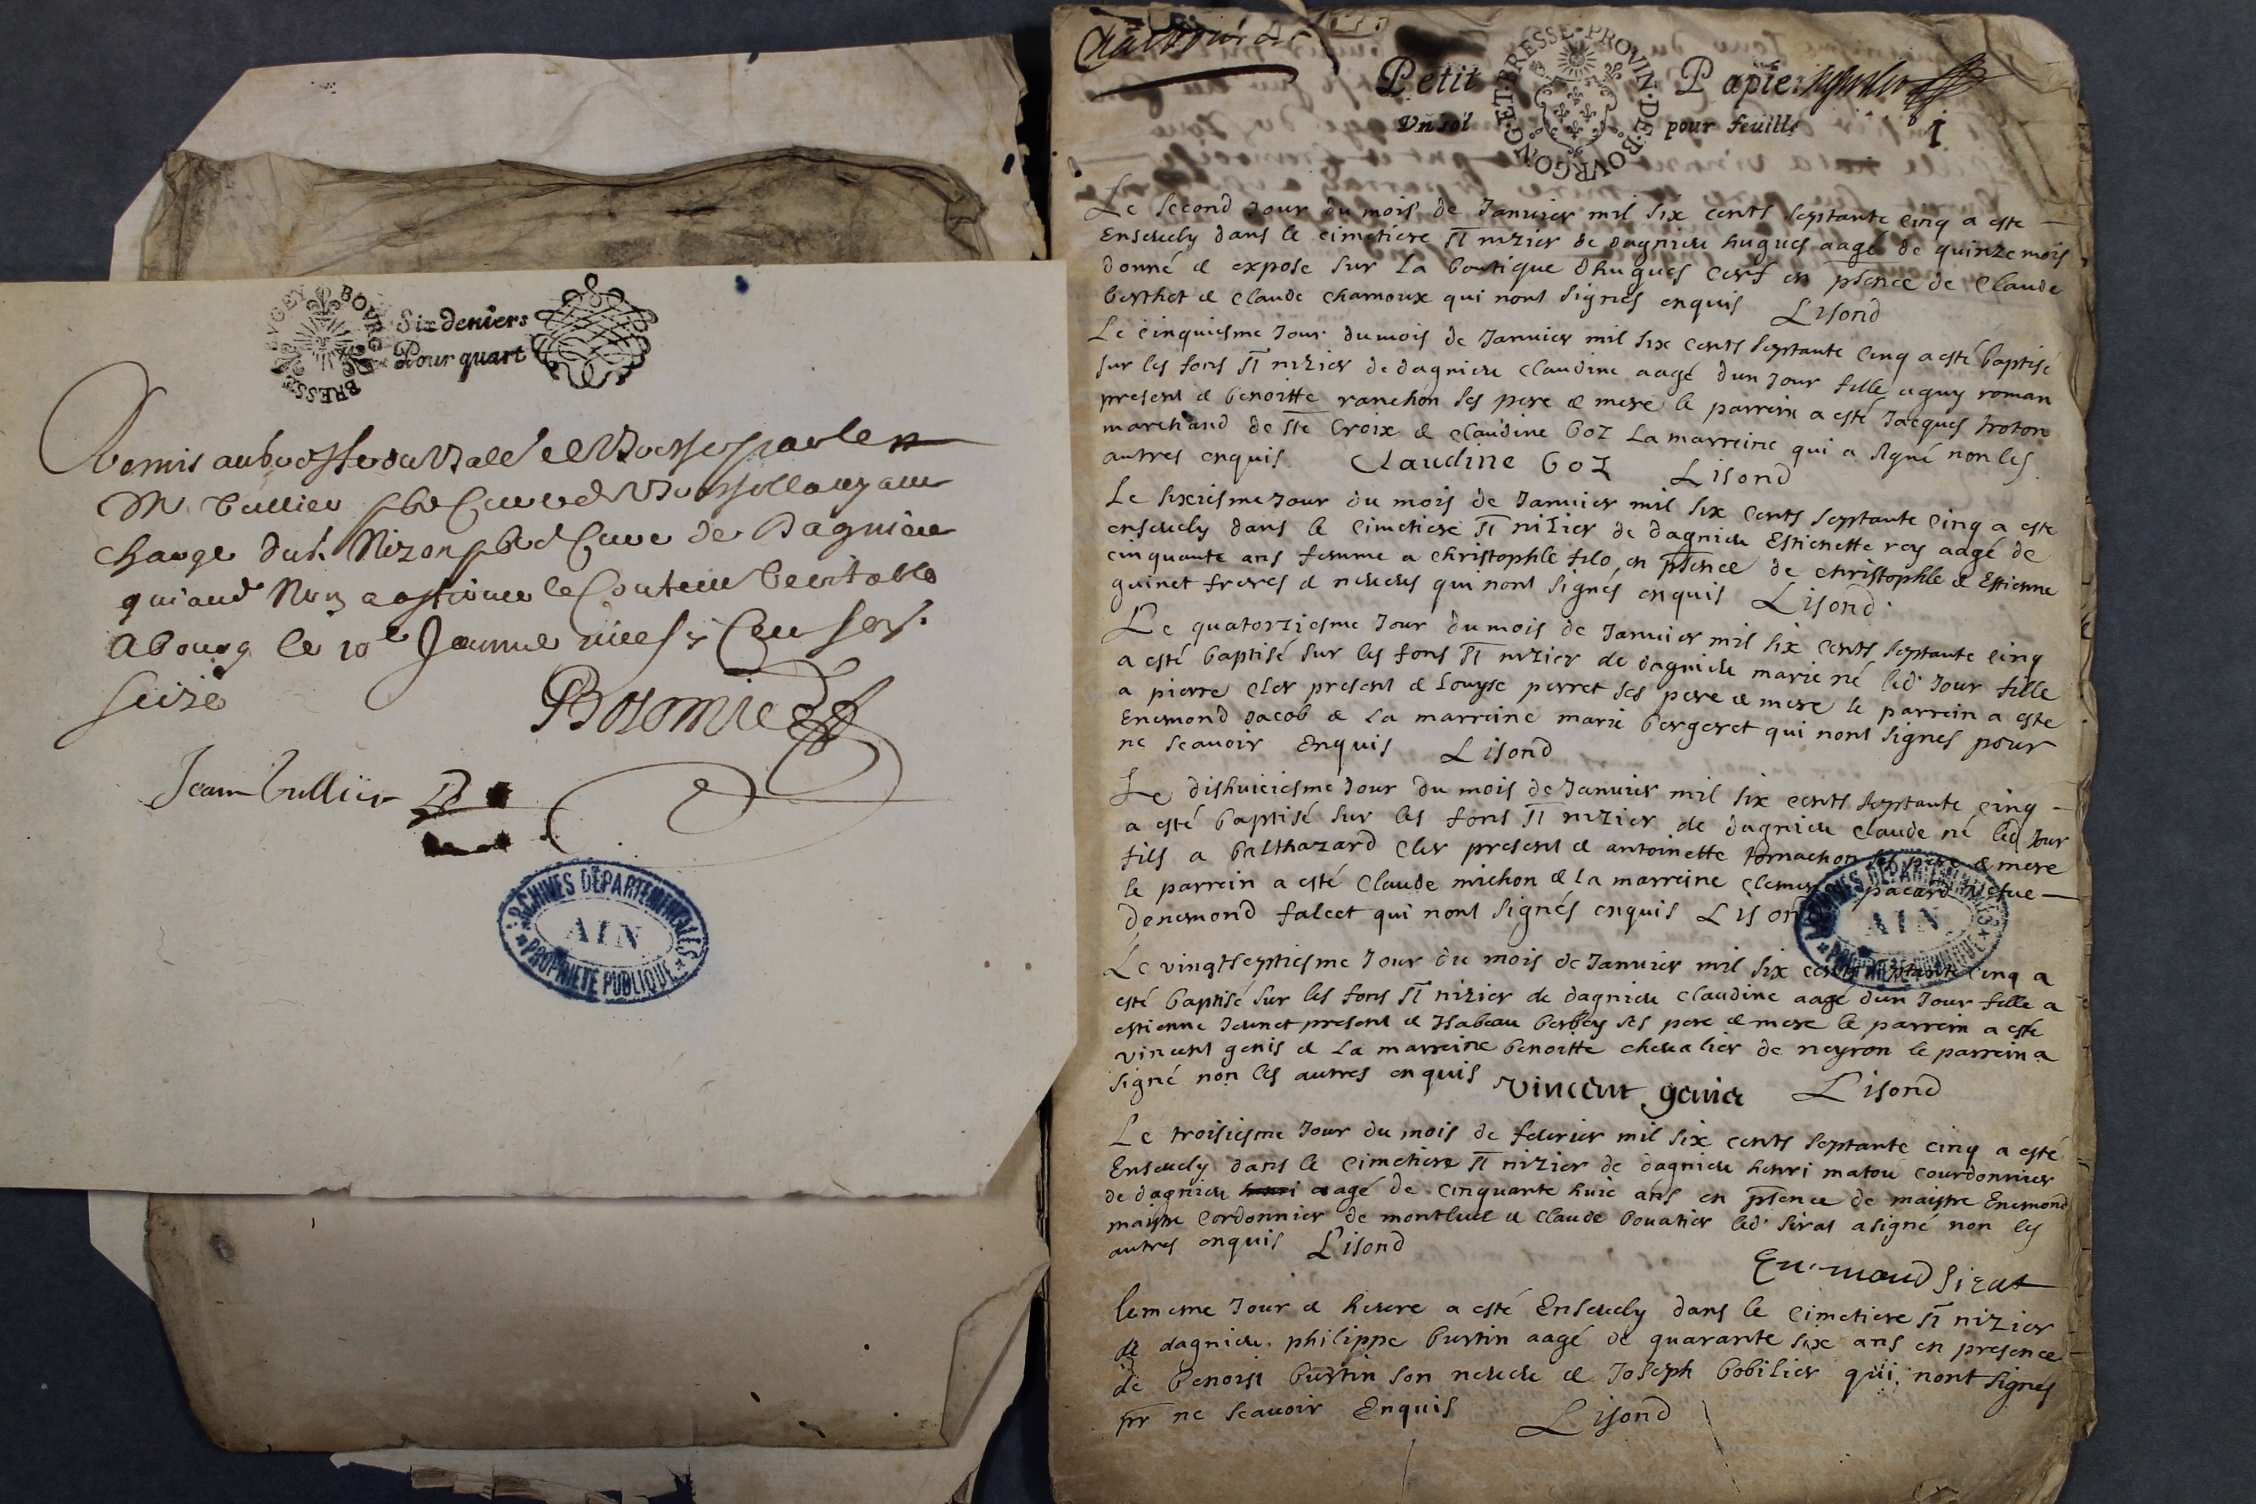 BVGEY BOVRG BRESSE
Six deniers
Pour quart
Remis au greffe du Balle
Mr Vullier
charge du Sr Nizon pbre Cure de Dagnieu
qui aud Nom a affirmé le Contenu Veritable
A bourg le 10e
seize
Jean Vullier
ARCHIVES DÉPARTEMENTALES
AIN
PROPRIÉTÉ PUBLIQUE
Petit Papier
Vn sol pour feuille
PROVIN·DE·BOVRGON·ET·BRESSE
1
Le second Jour du mois de Januier mil six cents septante cinq a este
Enseuely dans le cimetiere st nizier de dagnieu hugues aagé de quinze mois
donné & expose sur La boutique dhugues cerf en pñce de Claude
berthet & Claude chamoux qui nont signés enquis Lisond
Le cinquiesme Jour du mois de Januier mil six cents septante cinq a esté baptisé
sur les fons st nizier de dagnieu Claudine aagé dun Jour fille a guy roman
present & benoitte ranchon ses pere & mere le parrein a esté Jacques troton
marchand de ste Croix & Claudine boz La marreine qui a signé non les
autres enquis Claudine boz Lisond
Le sixiesme Jour du mois de Januier mil six cents septante cinq a este
enseuely dans le cimetiere st nizier de dagnieu Estienette rey aagé de
cinquante ans femme a christophle filo, en pñce de christophle & Estienne
guinet freres & neueus qui nont signés enquis Lisond
Le quatorziesme Jour du mois de Januier mil six cents septante cinq
a esté baptisé sur les fons st nizier de dagnieu marie né led Jour fille
a pierre cler present & Louyse perret ses pere & mere le parrein a este
Enemond Jacob & La marreine marie bergeret qui nont signés pour
ne scauoir Enquis Lisond
Le dishuiciesme Jour du mois de Januier mil six cents septante cinq
a esté baptisé sur les fons st nizier de dagnieu Claude né led Jour
fils a balthazard cler present & antoinette ses pere & mere
le parrein a esté Claude michon & la marreine pacard vefue
denemond falcet qui nont signés enquis Lisond
ARCHIVES DÉPARTEMENTALES
AIN
PROPRIÉTÉ PUBLIQUE
Le vingtseptiesme Jour du mois de Januier mil six cents septante cinq a
esté baptisé sur les fons st nizier de dagnieu Claudine aagé dun Jour fille a
estienne Jeunet present & Isabeau berbey ses pere & mere le parrein a esté
vincent genis & La marreine benoitte cheualier de neyron le parrein a
signé non les autres enquis vincent genis Lisond
Le troisiesme Jour du mois de feurier mil six cents septante cinq a esté
Enseuely dans le cimetiere st nizier de dagnieu henri matou courdonnier
de dagnieu aagé de cinquante huic ans en pñce de maistre Enemond
maistre cordonnier de montluel & Claude bouatier led sirat a signé non les
autres enquis Lisond
Enemond Sirat
le meme Jour & heure a esté Enseuely dans le cimetiere st nizier
de dagnieu philippe burtin aagé de quarante six ans en presence
de benoist burtin son neueu & Joseph bobilier qui nont signés
pr ne scauoir Enquis Lisond